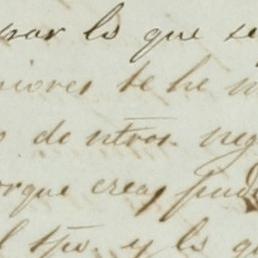 par lo que se
niores te he
de ntros. neg
orque creas pud
l tpo. y lo q